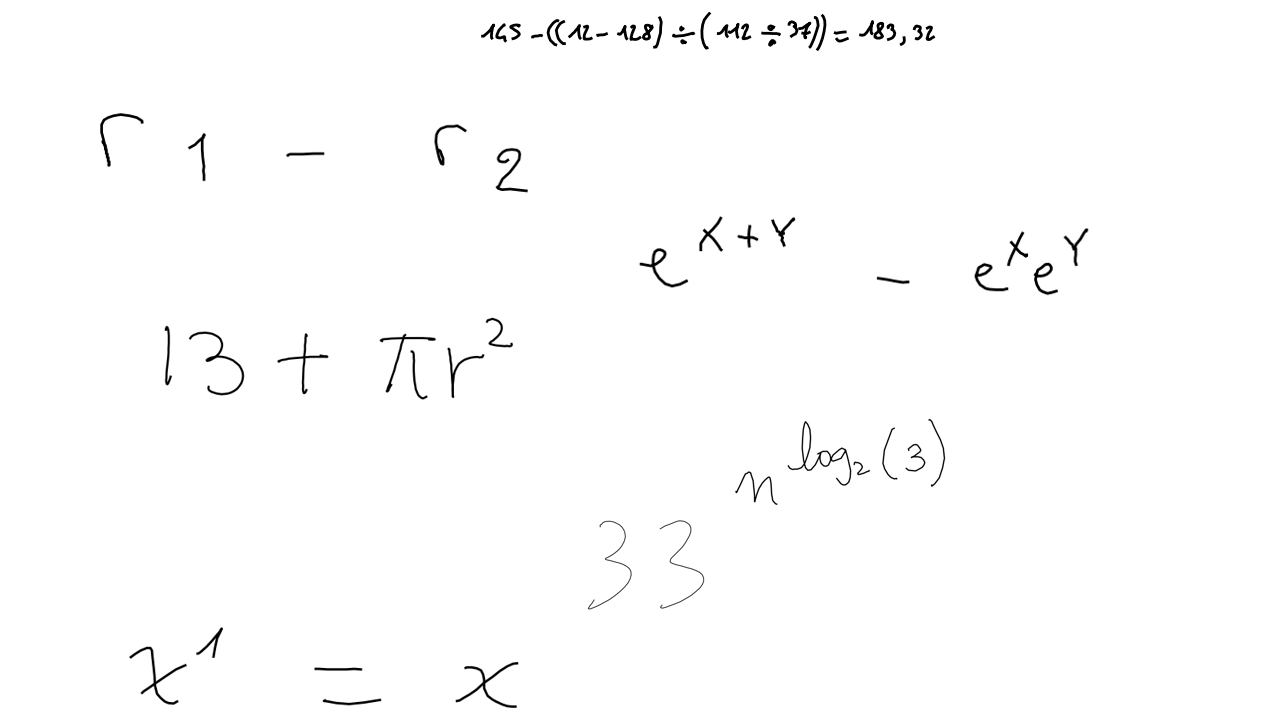 145 - ((12 - 128) ÷ (112 ÷ 37)) = 183,32
r 1 - r 2
e^{X+Y} - e^X e^Y
13 + πr²
33^{n^{log₂(3)}}
x¹ = x